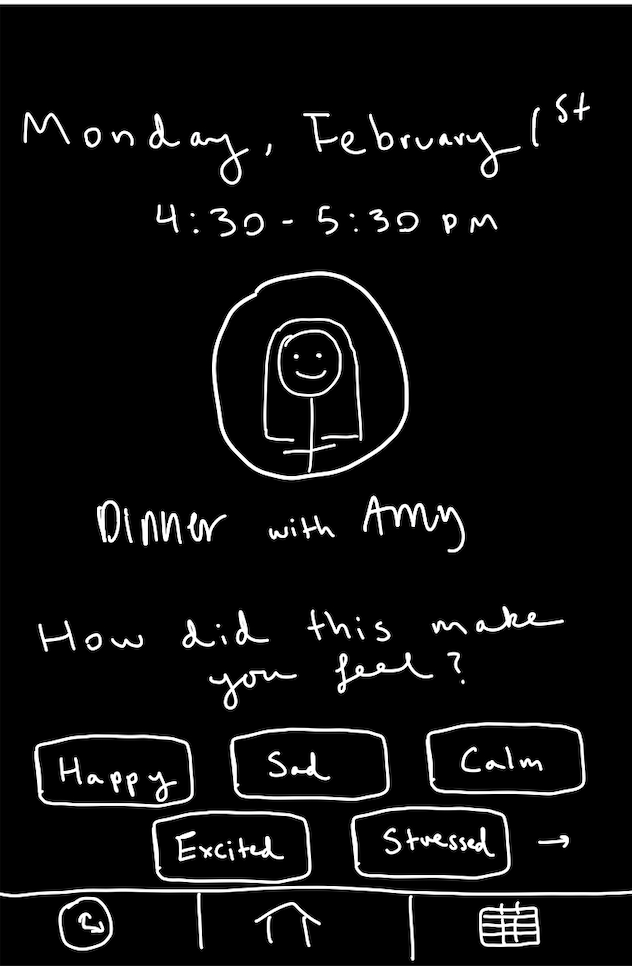 Monday, February 1st
4:30 - 5:30 PM
Dinner with Amy
How did this make
you feel?
Happy Sad Calm
Excited Stressed →